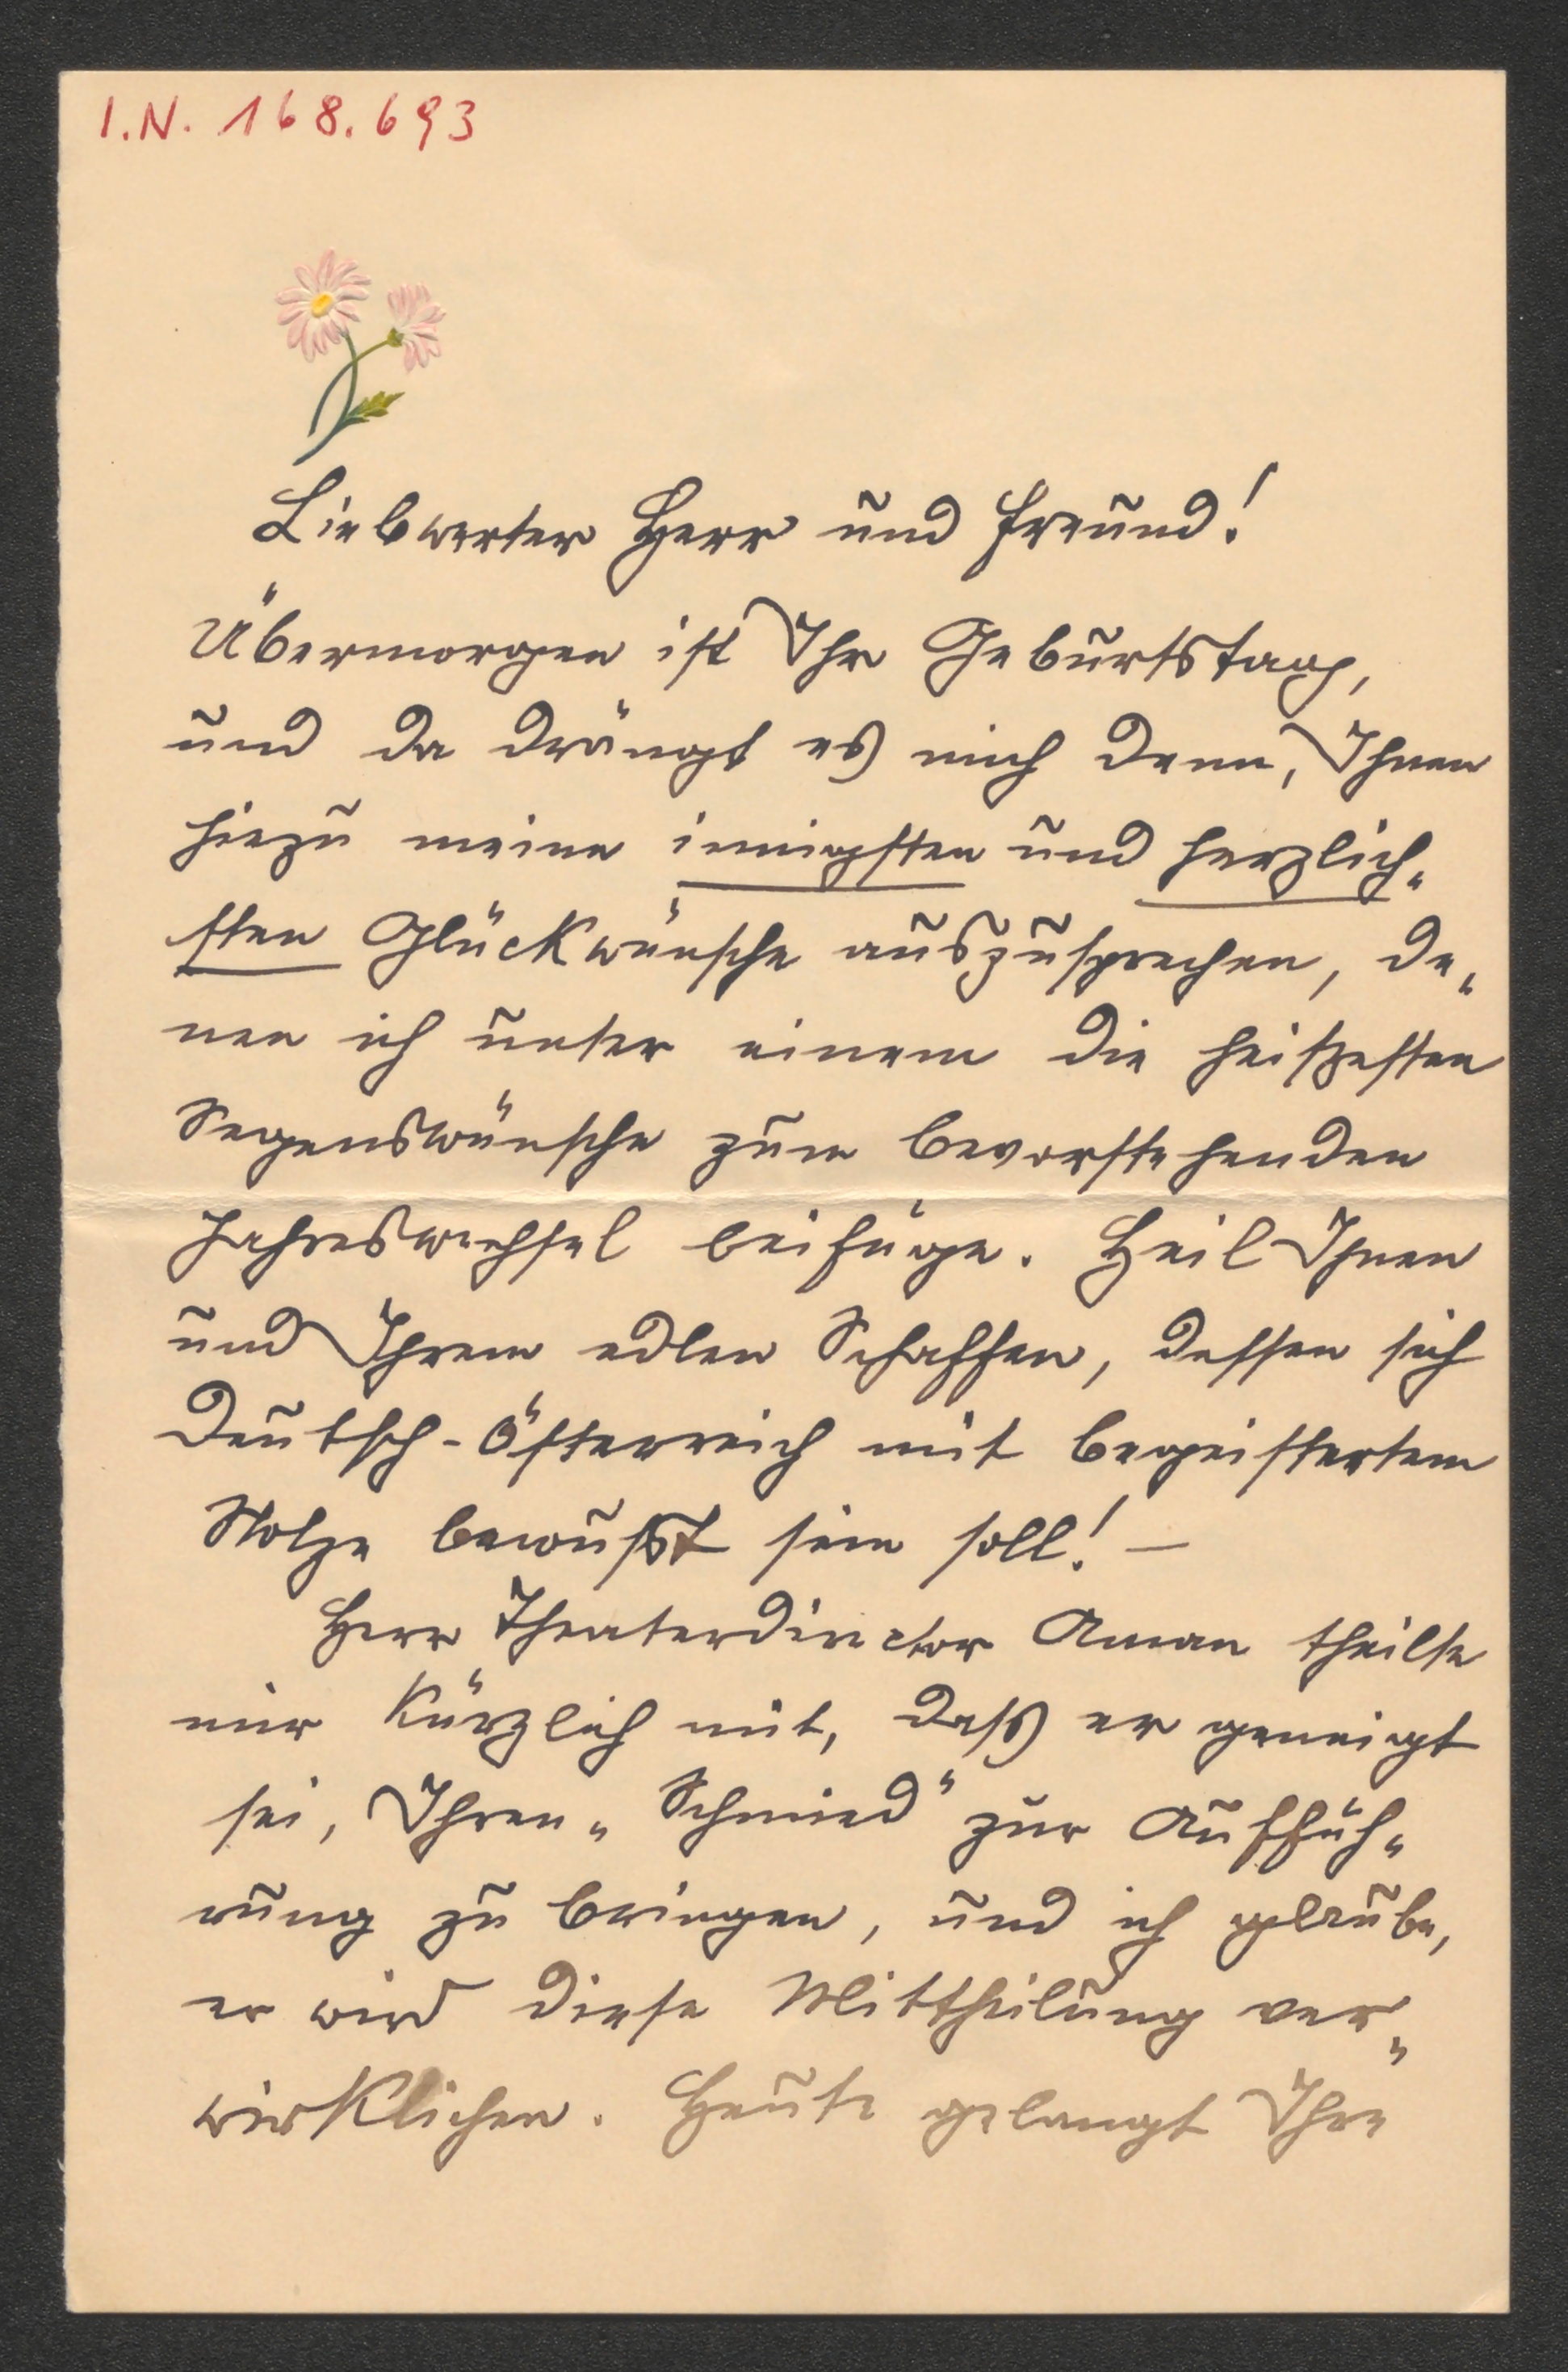 I.N. 168.693
Liebwerter Herr und Freund!
Übermorgen ist Ihr Geburtstag,
und da drängt es mich denn, Ihnen
hiezu meine innigsten und herzlich-
sten Glückwünsche auszusprechen, de-
nen ich unter einem die heißesten
Segenswünsche zum bevorstehenden
Jahreswechsel beifüge. Heil Ihnen
und Ihrem edlen Schaffen, dessen sich
Deutsch-Österreich mit begeistertem
Stolze bewußt sein soll! —
Herr Theaterdirector Aman theilte
mir kürzlich mit, daß er geneigt
sei, Ihren „Schmied" zur Auffüh-
rung zu bringen, und ich glaube,
er wird diese Mittheilung ver-
wirklichen. Heute gelangt Ihre